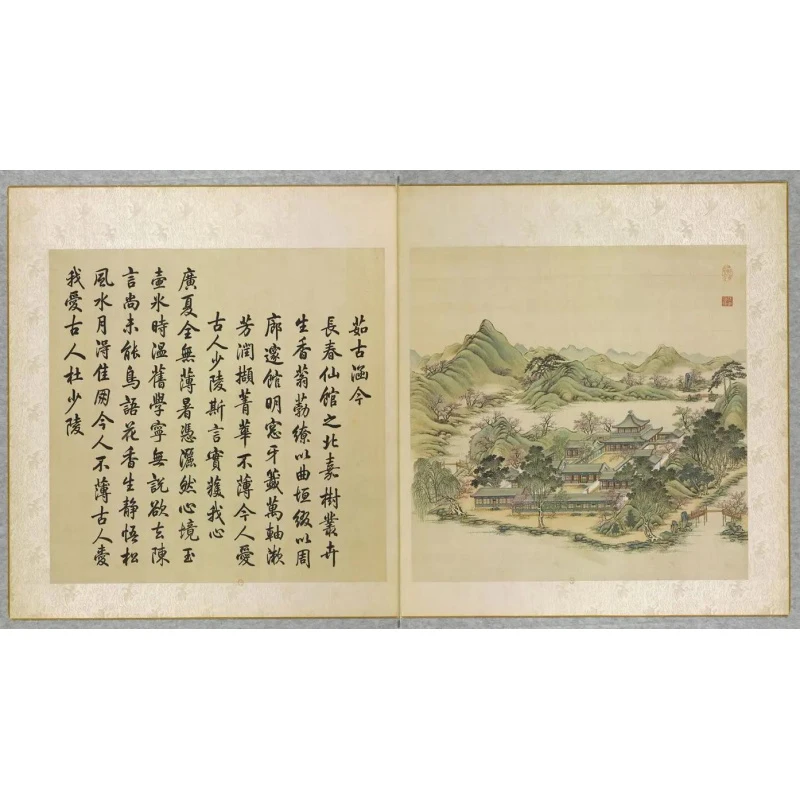 茹古涵今
長春仙館之北嘉樹叢卉
生香蓊葧繚以曲垣綴以周
廊邃館明窓牙籤萬軸漱
芳潤擷菁華不薄今人愛
古人少陵斯言實獲我心
廣夏全無薄暑憑灑然心境玉
壺氷時溫舊學寧無說欲去陳
言尚未能鳥語花香生静悟松
風水月淂佳朋今人不薄古人愛
我愛古人杜少陵